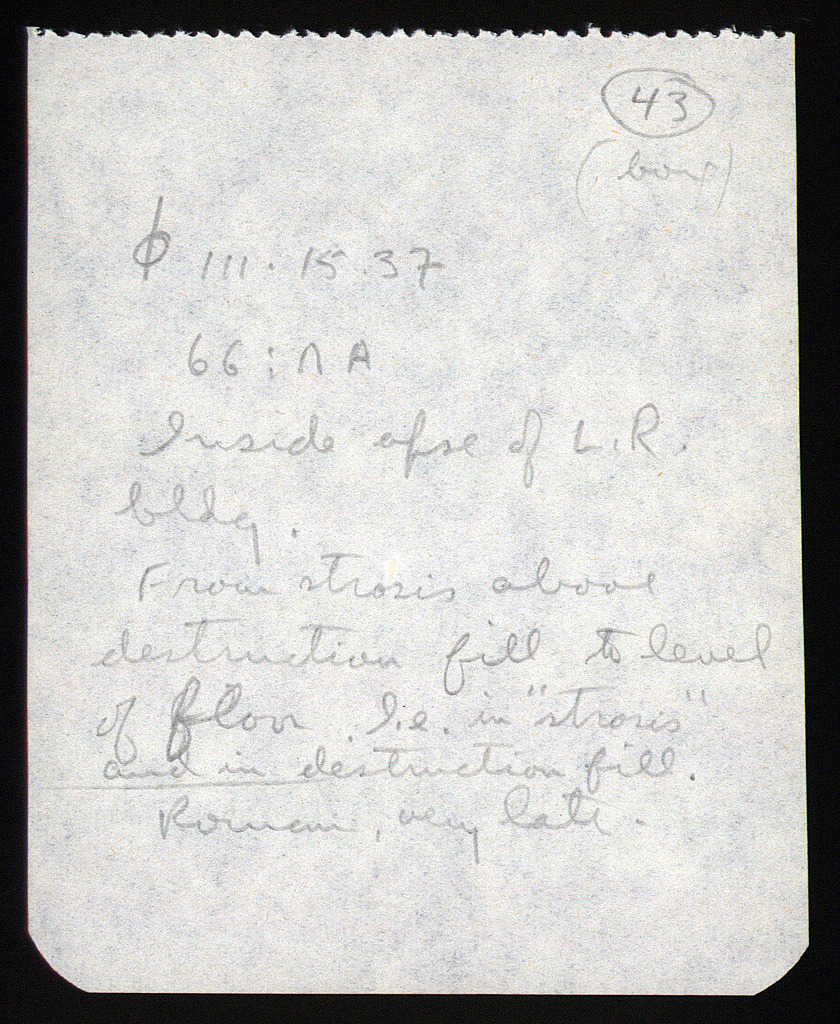 43
(box)
φ 111.15.37
66 : ΛΑ
Inside apse of L.R.
bldg.
From strosis above
destruction fill to level
of floor. I.e. in "strosis"
and in destruction fill.
Roman, very late.